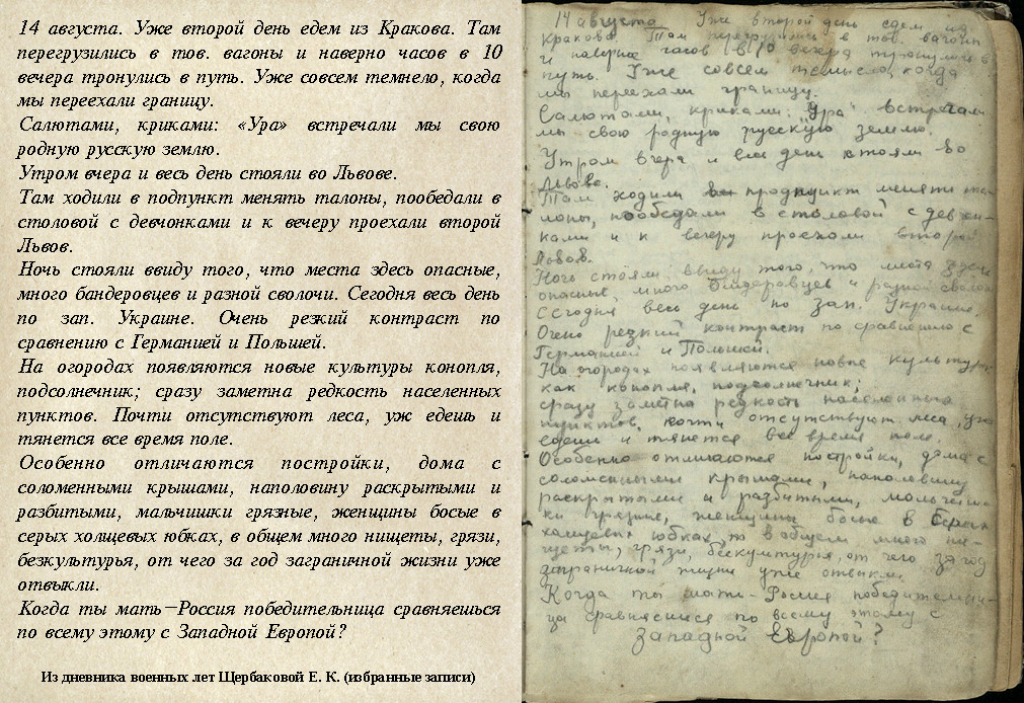 14 августа. Уже второй день едем из Кракова. Там
перегрузились в тов. вагоны и наверно часов в 10
вечера тронулись в путь. Уже совсем темнело, когда
мы переехали границу.
Салютами, криками: «Ура» встречали мы свою
родную русскую землю.
Утром вчера и весь день стояли во Львове.
Там ходили в подпункт менять талоны, пообедали в
столовой с девчонками и к вечеру проехали второй
Львов.
Ночь стояли ввиду того, что места здесь опасные,
много бандеровцев и разной сволочи. Сегодня весь день
по зап. Украине. Очень резкий контраст по
сравнению с Германией и Польшей.
На огородах появляются новые культуры конопля,
подсолнечник; сразу заметна редкость населенных
пунктов. Почти отсутствуют леса, уж едешь и
тянется все время поле.
Особенно отличаются постройки, дома с
соломенными крышами, наполовину раскрытыми и
разбитыми, мальчишки грязные, женщины босые в
серых холщевых юбках, в общем много нищеты, грязи,
безкультурья, от чего за год заграничной жизни уже
отвыкли.
Когда ты мать–Россия победительница сравняешься
по всему этому с Западной Европой?
Из дневника военных лет Щербаковой Е. К. (избранные записи)
14 августа Уже второй день едем из
Кракова. Там перегрузились в тов. вагоны
и наверно часов в 10 вечера тронулись в
путь. Уже совсем темнело, когда
мы переехали границу.
Салютами, криками: "Ура" встречали
мы свою родную русскую землю.
Утром вчера и весь день стояли во
Львове.
Там ходили в продпункт менять та-
лоны, пообедали в столовой с девчен-
ками и к вечеру проехали второй
Львов.
Ночь стояли ввиду того, что места здесь
опасные, много бандеровцев и разной сволочи
Сегодня весь день по зап. Украине.
Очень резкий контраст по сравнению с
Германией и Польшей.
На огородах появляются новые культуры
как конопля, подсолнечник;
сразу заметна редкость населенных
пунктов, почти отсутствуют леса, уж
едешь и тянется все время поле.
Особенно отличаются постройки, дома с
соломенными крышами, наполовину
раскрытыми и разбитыми, мальчиш-
ки грязные, женщины босые в серых
холщевых юбках, в общем много ни-
щеты, грязи, бескультурья, от чего за год
заграничной жизни уже отвыкли.
Когда ты мать-Россия победительни-
ца сравняешься по всему этому с
Западной Европой?